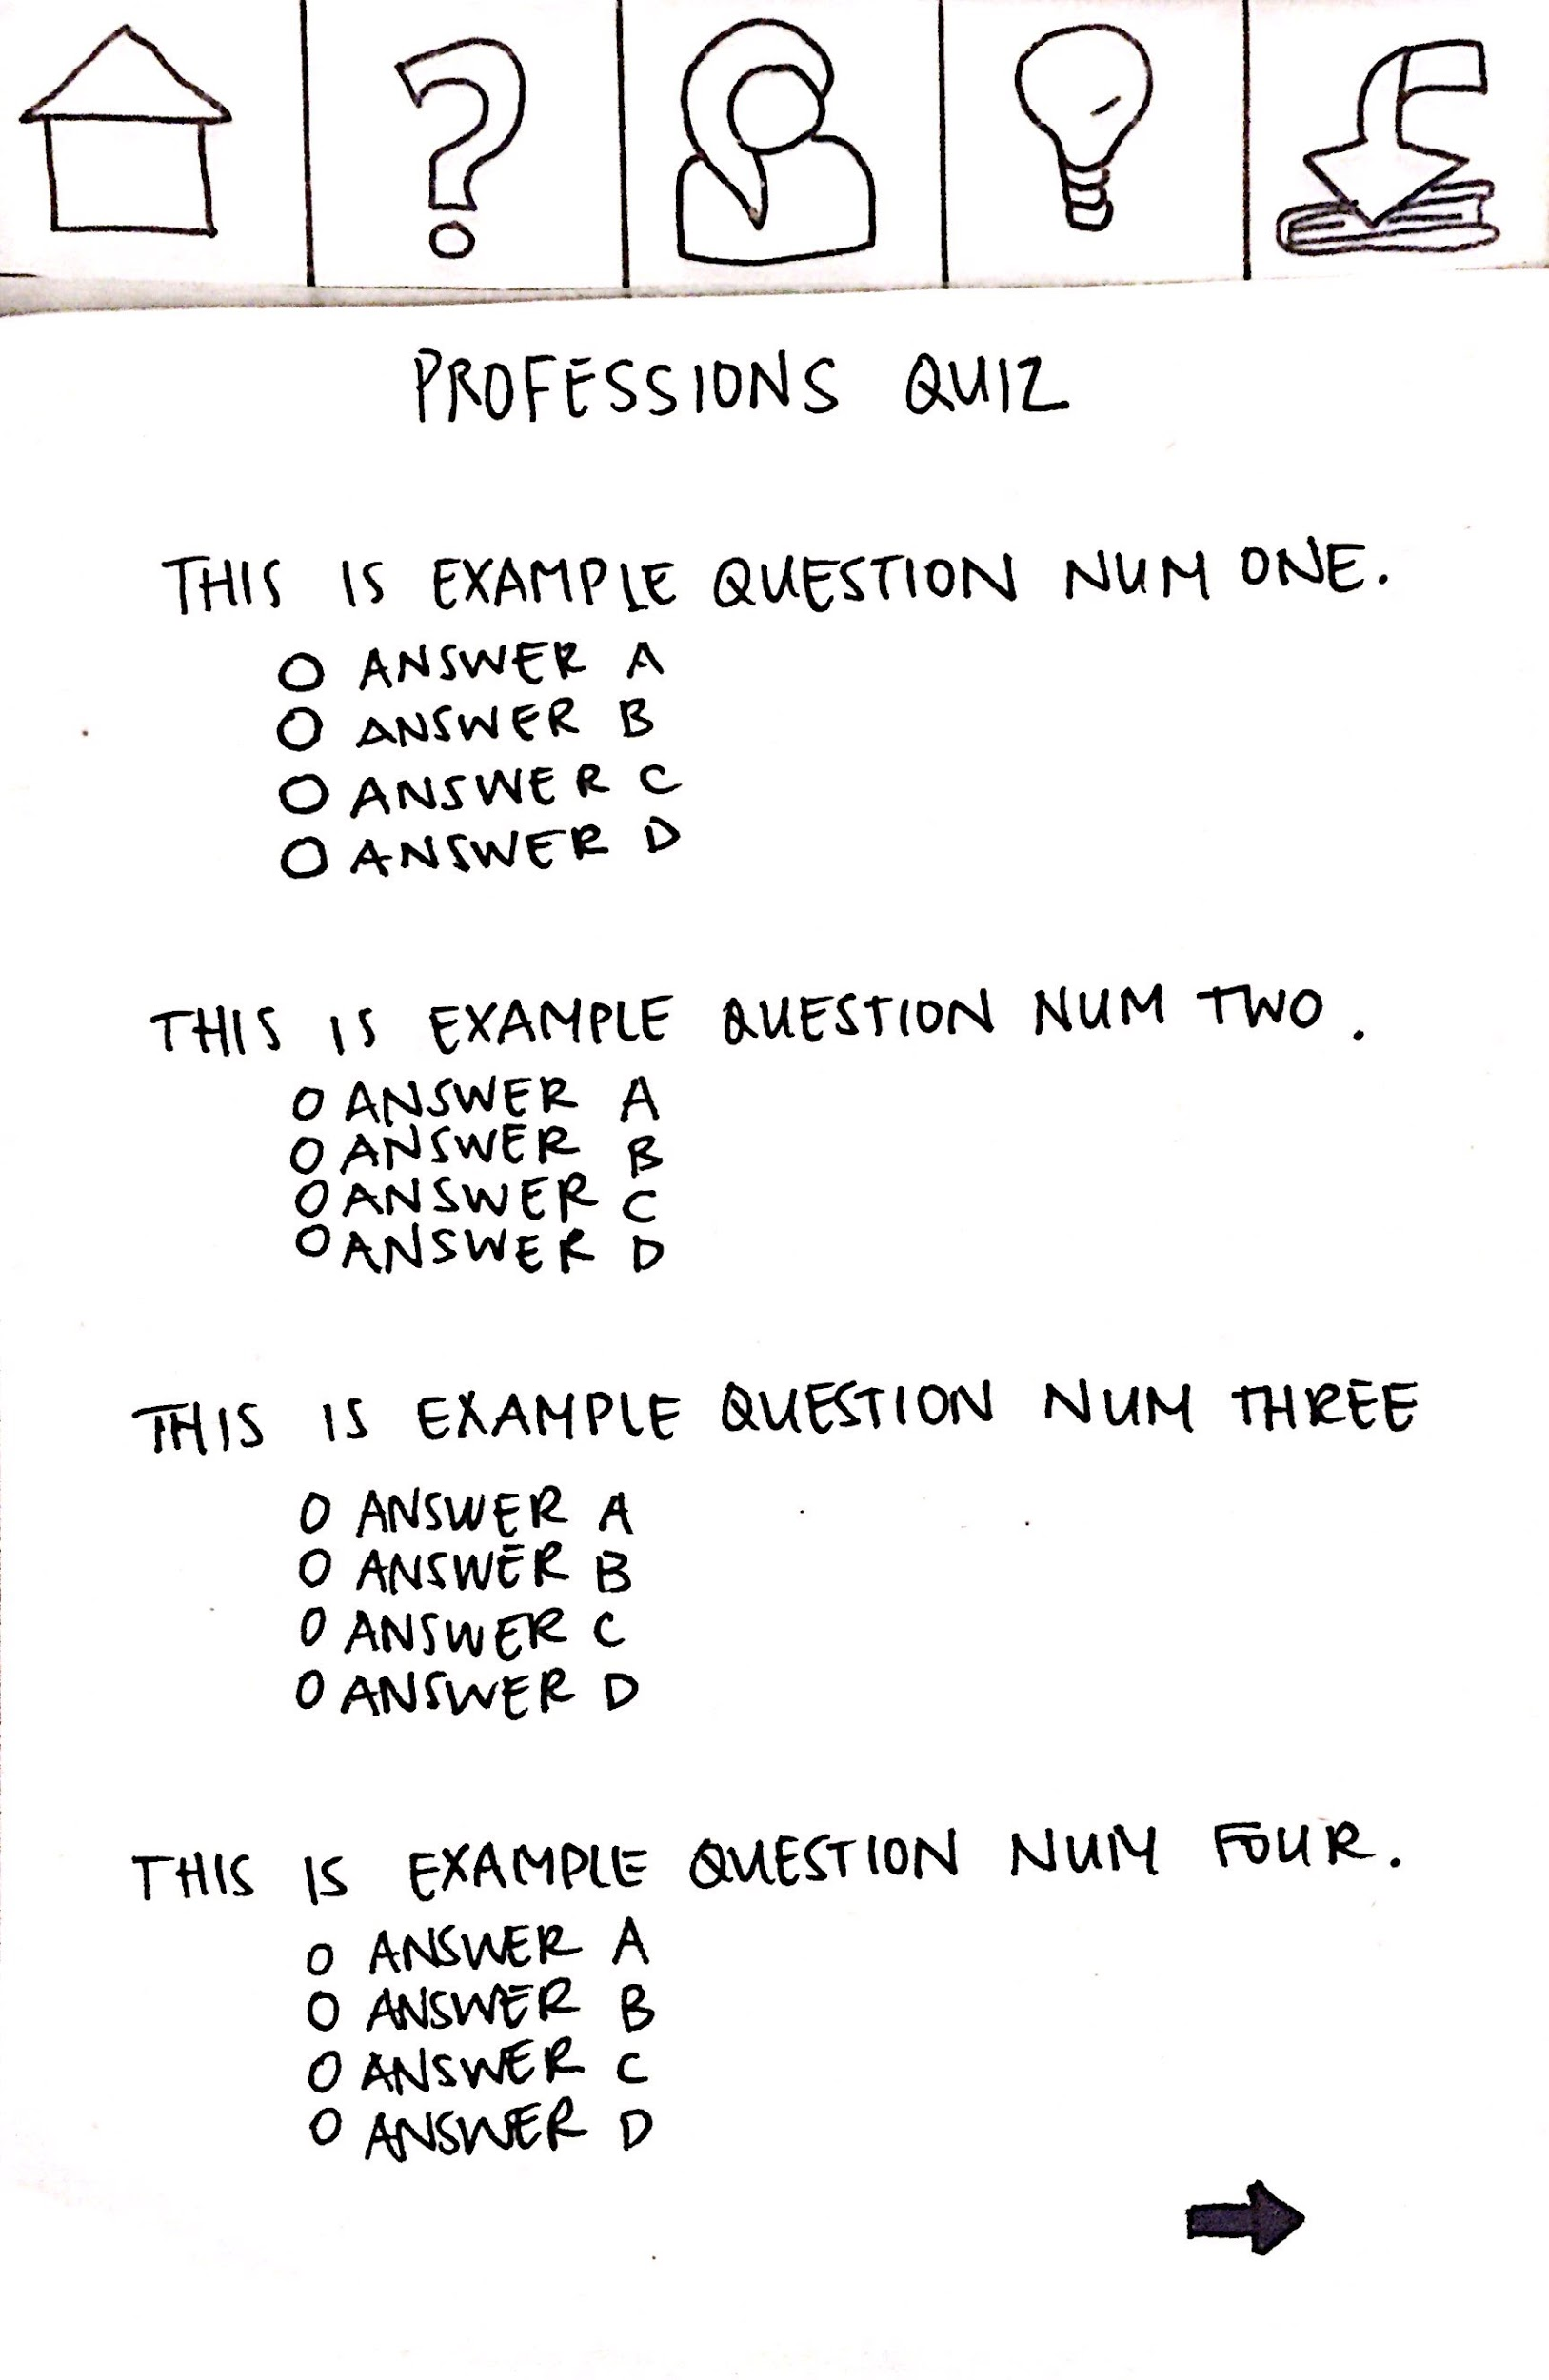 PROFESSIONS QUIZ
THIS IS EXAMPLE QUESTION NUM ONE.
ANSWER A
ANSWER B
ANSWER C
ANSWER D
THIS IS EXAMPLE QUESTION NUM TWO.
ANSWER A
ANSWER B
ANSWER C
ANSWER D
THIS IS EXAMPLE QUESTION NUM THREE
ANSWER A
ANSWER B
ANSWER C
ANSWER D
THIS IS EXAMPLE QUESTION NUM FOUR.
ANSWER A
ANSWER B
ANSWER C
ANSWER D